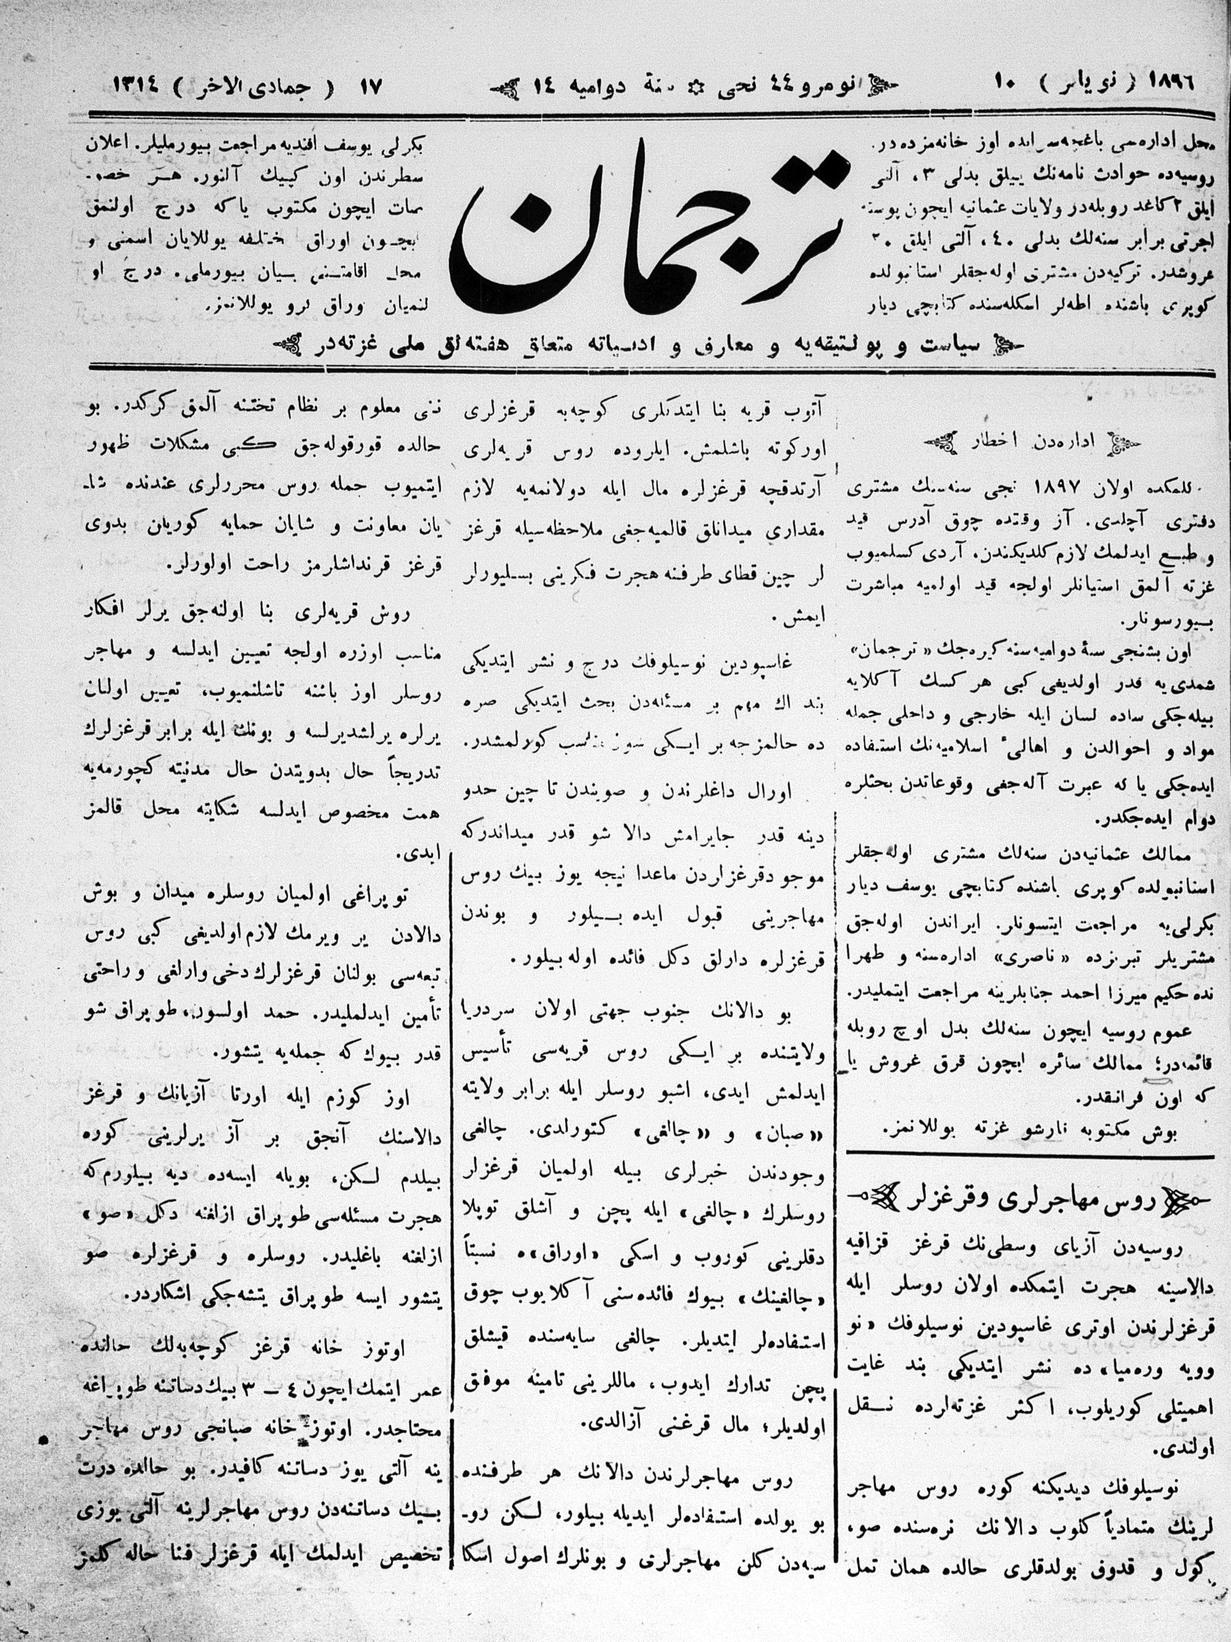 ١٨٩٦ ( نویابر ) ١٠
نومرو ٤٤ نجی ✲ سنهٔ دوامیه ١٤
١٧ ( جمادی الاخر ) ١٣١٤
محل اداره‌سی باغچه‌سرایده اوز خانه‌مزده‌در.
روسیه‌ده حوادث نامه‌نك ییللق بدلی ٣، آلتی
آیلق ٢ كاغد روبله‌در ولایات عثمانیه ایچون بوسته
اجرتی برابر سنه‌لك بدلی ٤٠، آلتی ایلق ٢٠
غروشدر. تركیه‌دن مشتری اوله‌جقلر استانبولده
كوپری باشنده اطه‌لر اسكله‌سنده كتابچی دیار
ترجمان
بكرلی یوسف افندیه مراجعت بیورملیلر. اعلان
سطرندن اون كپیك آلنور. هر خصو-
صات ایچون مكتوب یاكه درج اولنمق
ایچون اوراق مختلفه یوللایان اسمنی و
محل اقامتنی بیان بیورملی. درج او
لنمیان اوراق كرو یوللانمز.
سیاست و پولتیقه‌یه و معارف و ادبیاته متعلق هفته‌لق ملی غزته‌در
اداره‌دن اخطار
كلمكده اولان ١٨٩٧ نجی سنه‌سنك مشتری
دفتری آچلدی. آز وقتده چوق آدرس قید
و طبع ایدلمك لازم كلدیكندن، آردی كسلمیوب
غزته آلمق استیانلر اولجه قید اولمیه مباشرت
بیورسونلر.
اون بشنجی سنهٔ دوامیه‌سنه كیره‌جك «ترجمان»
شمدی‌یه قدر اولدیغی كبی هر كسك آكلایه
بیله‌جكی ساده لسان ایله خارجی و داخلی جمله
مواد و احوالدن و اهالئ اسلامیه‌نك استفاده
ایده‌جكی یا كه عبرت آله‌جغی وقوعاتدن بحثلره
دوام ایده‌جكدر.
ممالك عثمانیه‌دن سنه‌لك مشتری اوله‌جقلر
استانبولده كوپری باشنده كتابچی یوسف دیار
بكرلی‌یه مراجعت ایتسونلر. ایراندن اوله‌جق
مشتریلر تبریزده «ناصری» اداره‌سنه و طهرا
نده حكیم میرزا احمد جنابلرینه مراجعت ایتملیدر.
عموم روسیه ایچون سنه‌لك بدل اوچ روبله
قائمه‌در؛ ممالك سائره ایچون قرق غروش یا
كه اون فرانقدر.
بوش مكتوبه قارشو غزته یوللانمز.
روس مهاجرلری و قرغزلر
روسیه‌دن آزیای وسطی‌نك قرغز قزاقیه
دالاسینه هجرت ایتمكده اولان روسلر ایله
قرغزلرندن اوتری غاسپودین نوسیلوفك «نو
وویه وره‌میا» ده نشر ایتدیكی بند غایت
اهمیتلی كوریلوب، اكثر غزته‌لرده نقل
اولندی.
نوسیلوفك دیدیكنه كوره روس مهاجر
لرینك متمادیاً كلوب دالانك نره‌سنده صو،
كول و قدوق بولدقلری حالده همان تمل
آتوب قریه بنا ایتدكلری كوچه‌به قرغزلری
اوركوته باشلمش. ایلروده روس قریه‌لری
آرتدقچه قرغزلره مال ایله دولانمه‌یه لازم
مقداری میدانلق قالمیه‌جغی ملاحظه‌سیله قرغز
لر چین قطای طرفنه هجرت فكرینی بسلیورلر
ایمش.
غاسپودین نوسیلوفك درج و نشر ایتدیكی
بند اك مهم بر مسئله‌دن بحث ایتدیكی صره
ده حالمزجه بر ایكی سوز مناسب كورلمشدر.
اورال داغلرندن و صویندن تا چین حدو
دینه قدر جایرامش دالا شو قدر میداندركه
موجود قرغزلردن ماعدا نیجه یوز بیك روس
مهاجرینی قبول ایده بیلور و بوندن
قرغزلره دارلق دكل فائده اوله بیلور.
بو دالانك جنوب جهتی اولان سردریا
ولایتنده بر ایكی روس قریه‌سی تأسیس
ایدلمش ایدی، اشبو روسلر ایله برابر ولایته
«صبان» و «چالغی» كتورلدی. چالغی
وجودندن خبرلری بیله اولمیان قرغزلر
روسلرك «چالغی» ایله پچن و آشلق توپلا
دقلرینی كوروب و اسكی «اوراق»ه نسبتاً
«چالغینك» بیوك فائده‌سنی آكلایوب چوق
استفاده‌لر ایتدیلر. چالغی سایه‌سنده قیشلق
پچن تدارك ایدوب، ماللرینی تأمینه موفق
اولدیلر؛ مال قرغنی آزالدی.
روس مهاجرلرندن دالانك هر طرفنده
بو یولده استفاده‌لر ایدیله بیلور، لكن رو-
سیه‌دن كلن مهاجرلری و بونلرك اصول اسكا
ننی معلوم بر نظام تختنه آلمق كركدر. بو
حالده قورقوله‌جق كبی مشكلات ظهور
ایتمیوب جمله روس محررلری عندنده شا-
یان معاونت و شایان حمایه كوریلن بدوی
قرغز قرنداشلرمز راحت اولورلر.
روش قریه‌لری بنا اولنه‌جق یرلر افكار
مناسب اوزره اولجه تعیین ایدلسه و مهاجر
روسلر اوز باشنه تاشلنمیوب، تعیین اولنان
یرلره یرلشدیرلسه و بونك ایله برابر قرغزلرك
تدریجاً حال بدویتدن حال مدنیته كچورمه‌یه
همت مخصوص ایدلسه شكایته محل قالمز
ایدی.
توپراغی اولمیان روسلره میدان و بوش
دالادن یر ویرمك لازم اولدیغی كبی روس
تبعه‌سی بولنان قرغزلرك دخی وارلغی و راحتی
تأمین ایدلملیدر. حمد اولسون، طوپراق شو
قدر بیوك كه جمله‌یه یتشور.
اوز كوزم ایله اورتا آزیانك و قرغز
دالاسنك آنجق بر آز یرلرینی كوره
بیلدم لكن، بویله ایسه‌ده دیه بیلورم كه
هجرت مسئله‌سی طوپراق ازلغنه دكل «صو»
ازلغنه باغلیدر. روسلره و قرغزلره صو
یتشور ایسه طوپراق یتشه‌جكی اشكاردر.
اوتوز خانه قرغز كوچه‌به‌لك حالنده
عمر ایتمك ایچون ٤ – ٣ بیك دساتنه طوپراغه
محتاجدر. اوتوز خانه صبانجی روس مهاجر
ینه آلتی یوز دساتنه كافیدر. بو حالده درت
بیك دساتنه‌دن روس مهاجرلرینه آلتی یوزی
تخصیص ایدلمك ایله قرغزلر فنا حاله كلمز